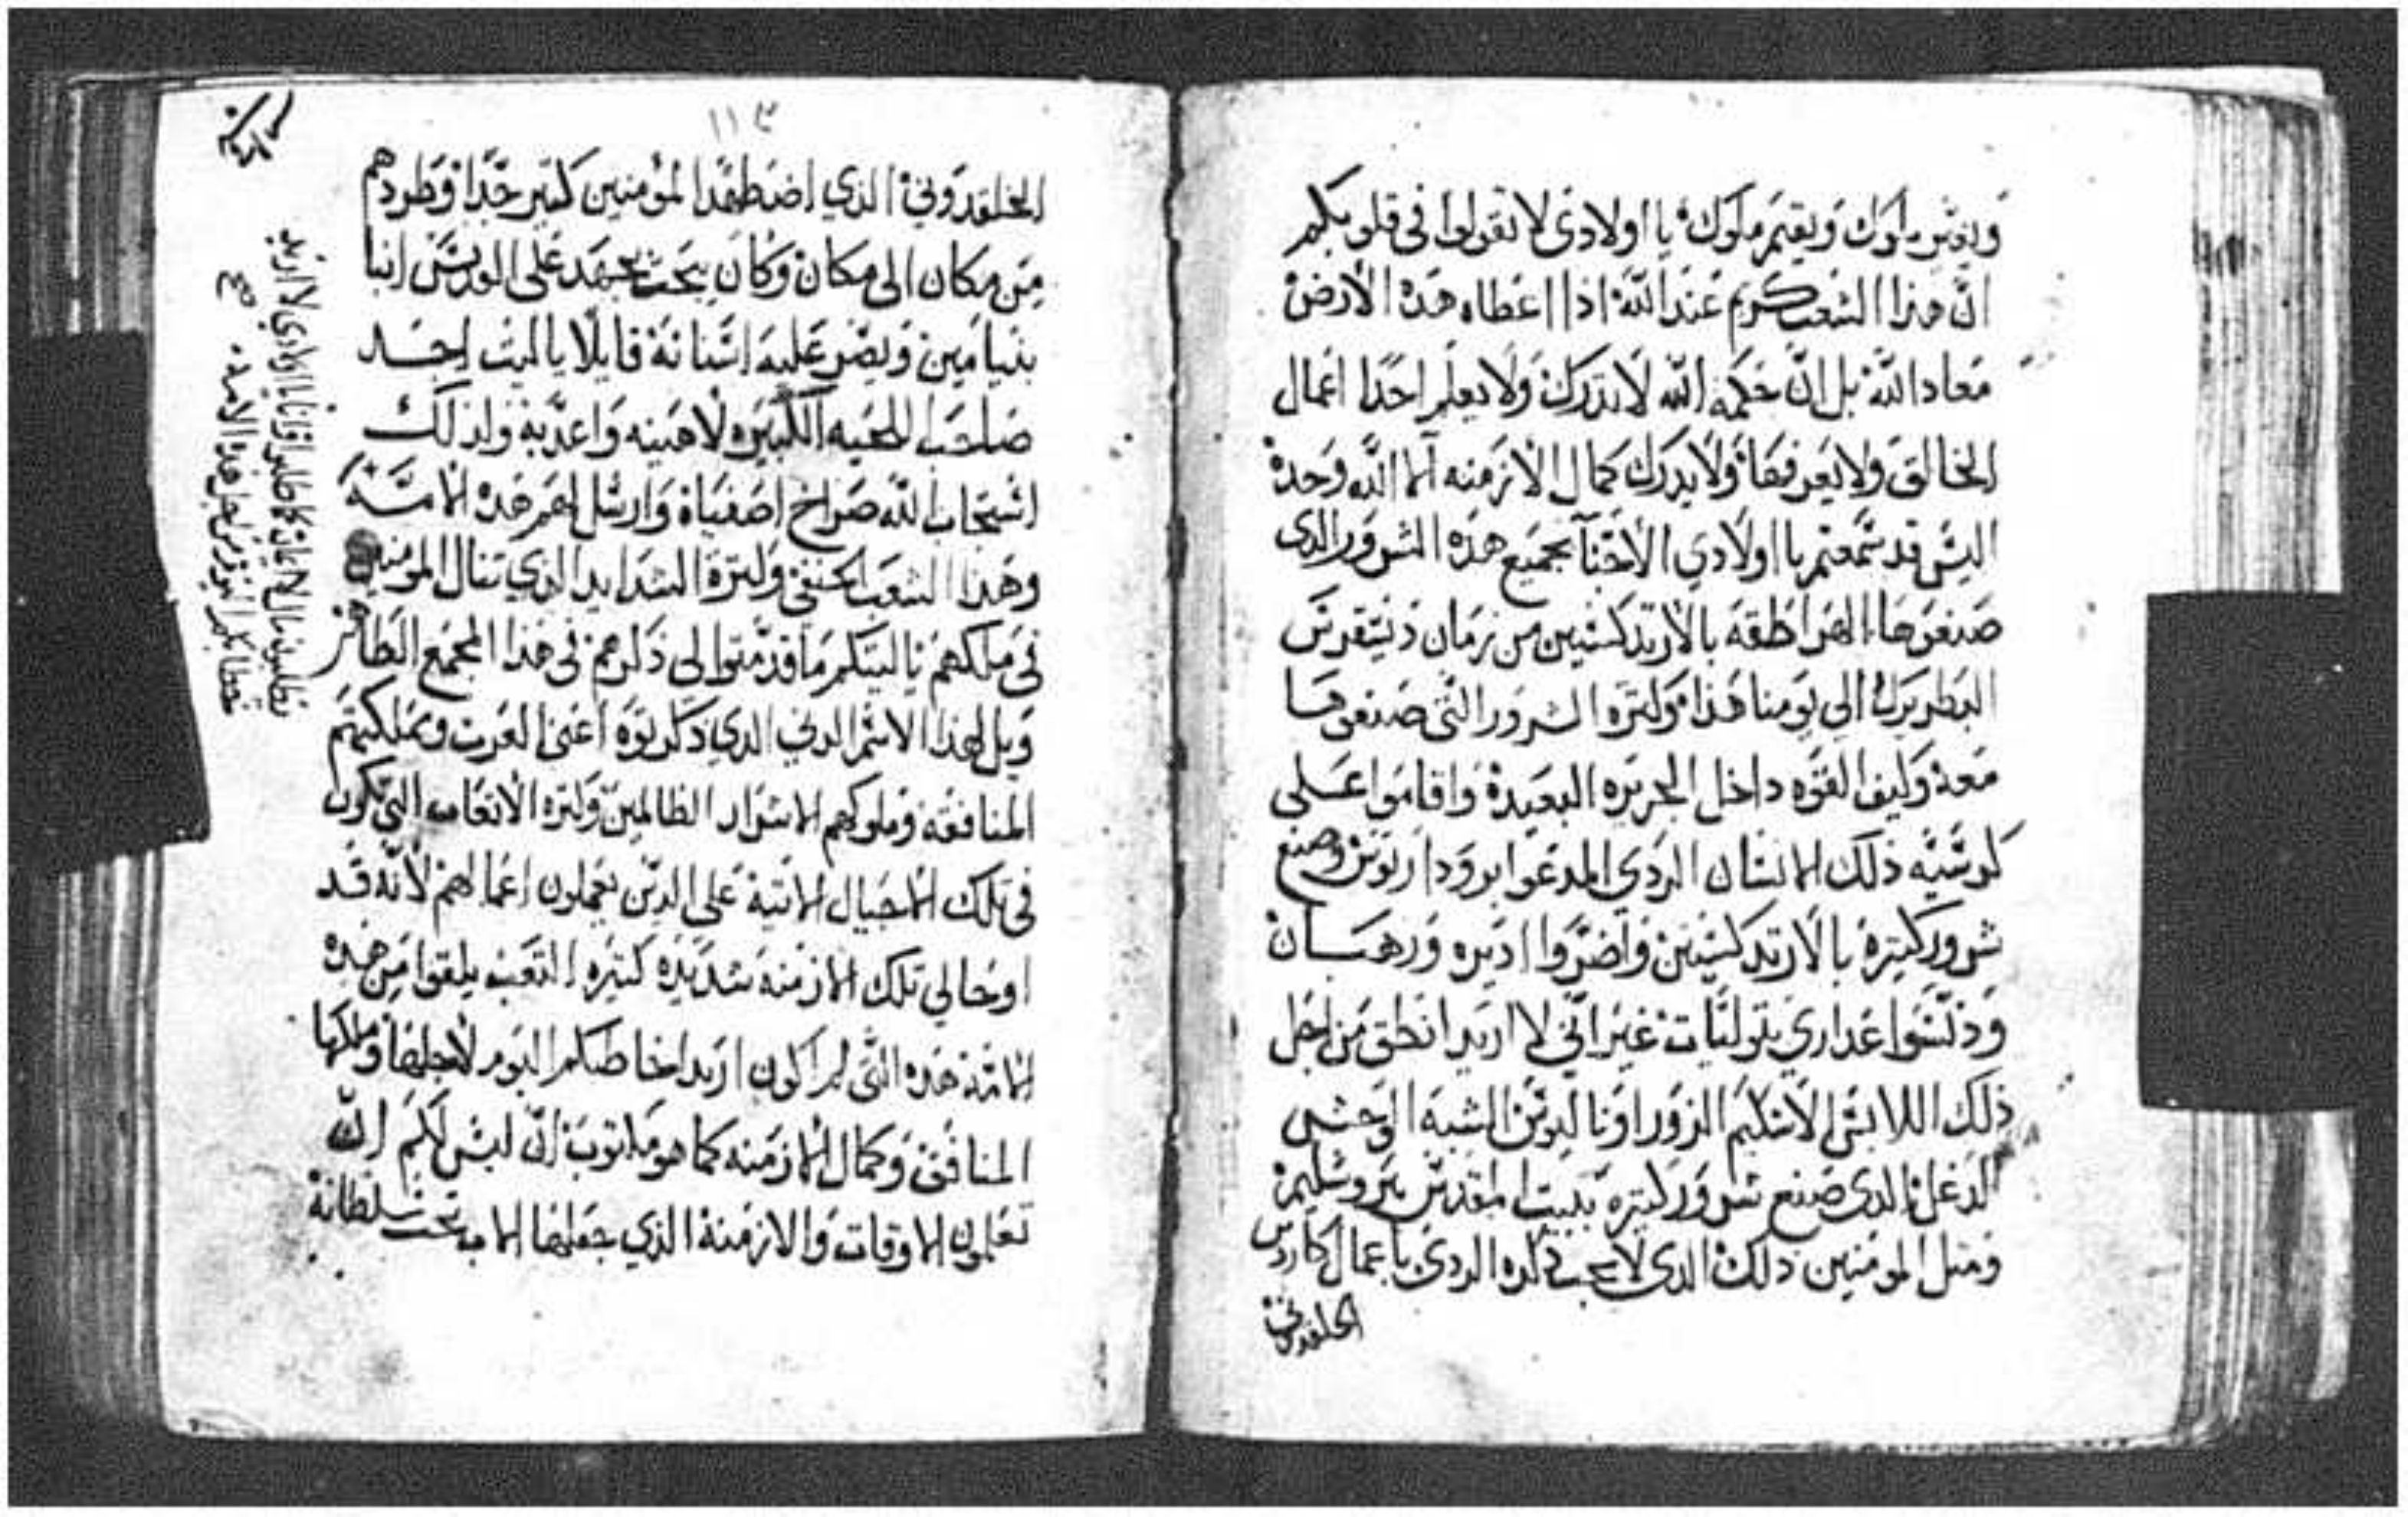 ويقيم ملوك يا اولادى لا تقولوا فى قلوبكم
انّ هذا الشعب كريم عند اللّه اذا اعطاه هذه الارض
معاد اللّه بل انّ حكمة اللّه لا تدرك ولا يعلم احدًا اعمال
الخالق ولا يعرفها ولا يدرك كمال الازمنه الا اللّه وحده
اليس قد سمعتم يا اولادي الاحبّآ بجميع هذه الشرور الدى
صنعوها الهراطقه بالارتدكسيين من زمان
البطريرك الي يومنا هذا وكتره الشرور التى صنعوها
معه وكيف القوه داخل الجزيره البعيدة واقاموا عــلى
كرسيه ذلك الانسان الردي المدعوا وصنع
شرور كتيرة بالارتدكسيين واضرّوا اديره ورهبــان
ودنّسوا عداري بتوليّات غير انّي لا اريد انطق من اجل
ذلك اللابس الاسكيم الزور الشبه الوحشى
الدى صنع شرور كتيره ببيت المقدس يروشليم
ومتل المومنين دلك الدى لا يجب دكره الردى باعمال
الخلقدونى
١١٣
الخلقدوني الذي اضطهد المؤمنين كتير جدًا وطردهم
من مكان الى مكان وكان يبحث بجهد على القديس انبا
بنيامين ويصر عليه اسنانه قايلًا يا ليت اجــد
صاحب اللحيه الكبيره لاهينه واعدّبه ولدلك
استجاب اللّه صراخ اصفياه وارسل لهم هده الامّــه
وهدا الشعب وكترة الشدايد الدي تنال المومنين
فى ملكهم يا ليتكم ما قدّمتوا لى دكرهم فى هدا المجمع الطاهر
ويل لهدا الاسم الدني الدي دكرتوه اعنى العرب ومملكتهم
المنافقه وملوكهم الاشرار الظالمين وكتره الاتعاب التي تكون
فى تلك الاجيال الاتية على الدين يعملون اعمالهم لانّه قــد
اوحا لي تلك الازمنه شديده كتيره التعب يلقوا من هده
الامّة هده التّى لم اكون اريد اخاطبكم اليوم لاجلها وملكها
المنافق وكمال الازمنه كما هو مكتوب انّ ليس لكم انّ
تعلمون الاوقات والازمنة الذي جعلها الاب تحت سلطانه